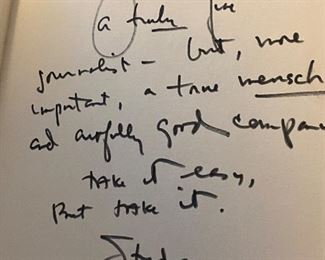 a truly fine
journalist - but, more
important, a true mensch
and awfully good company
take it easy,
But take it.
Studs